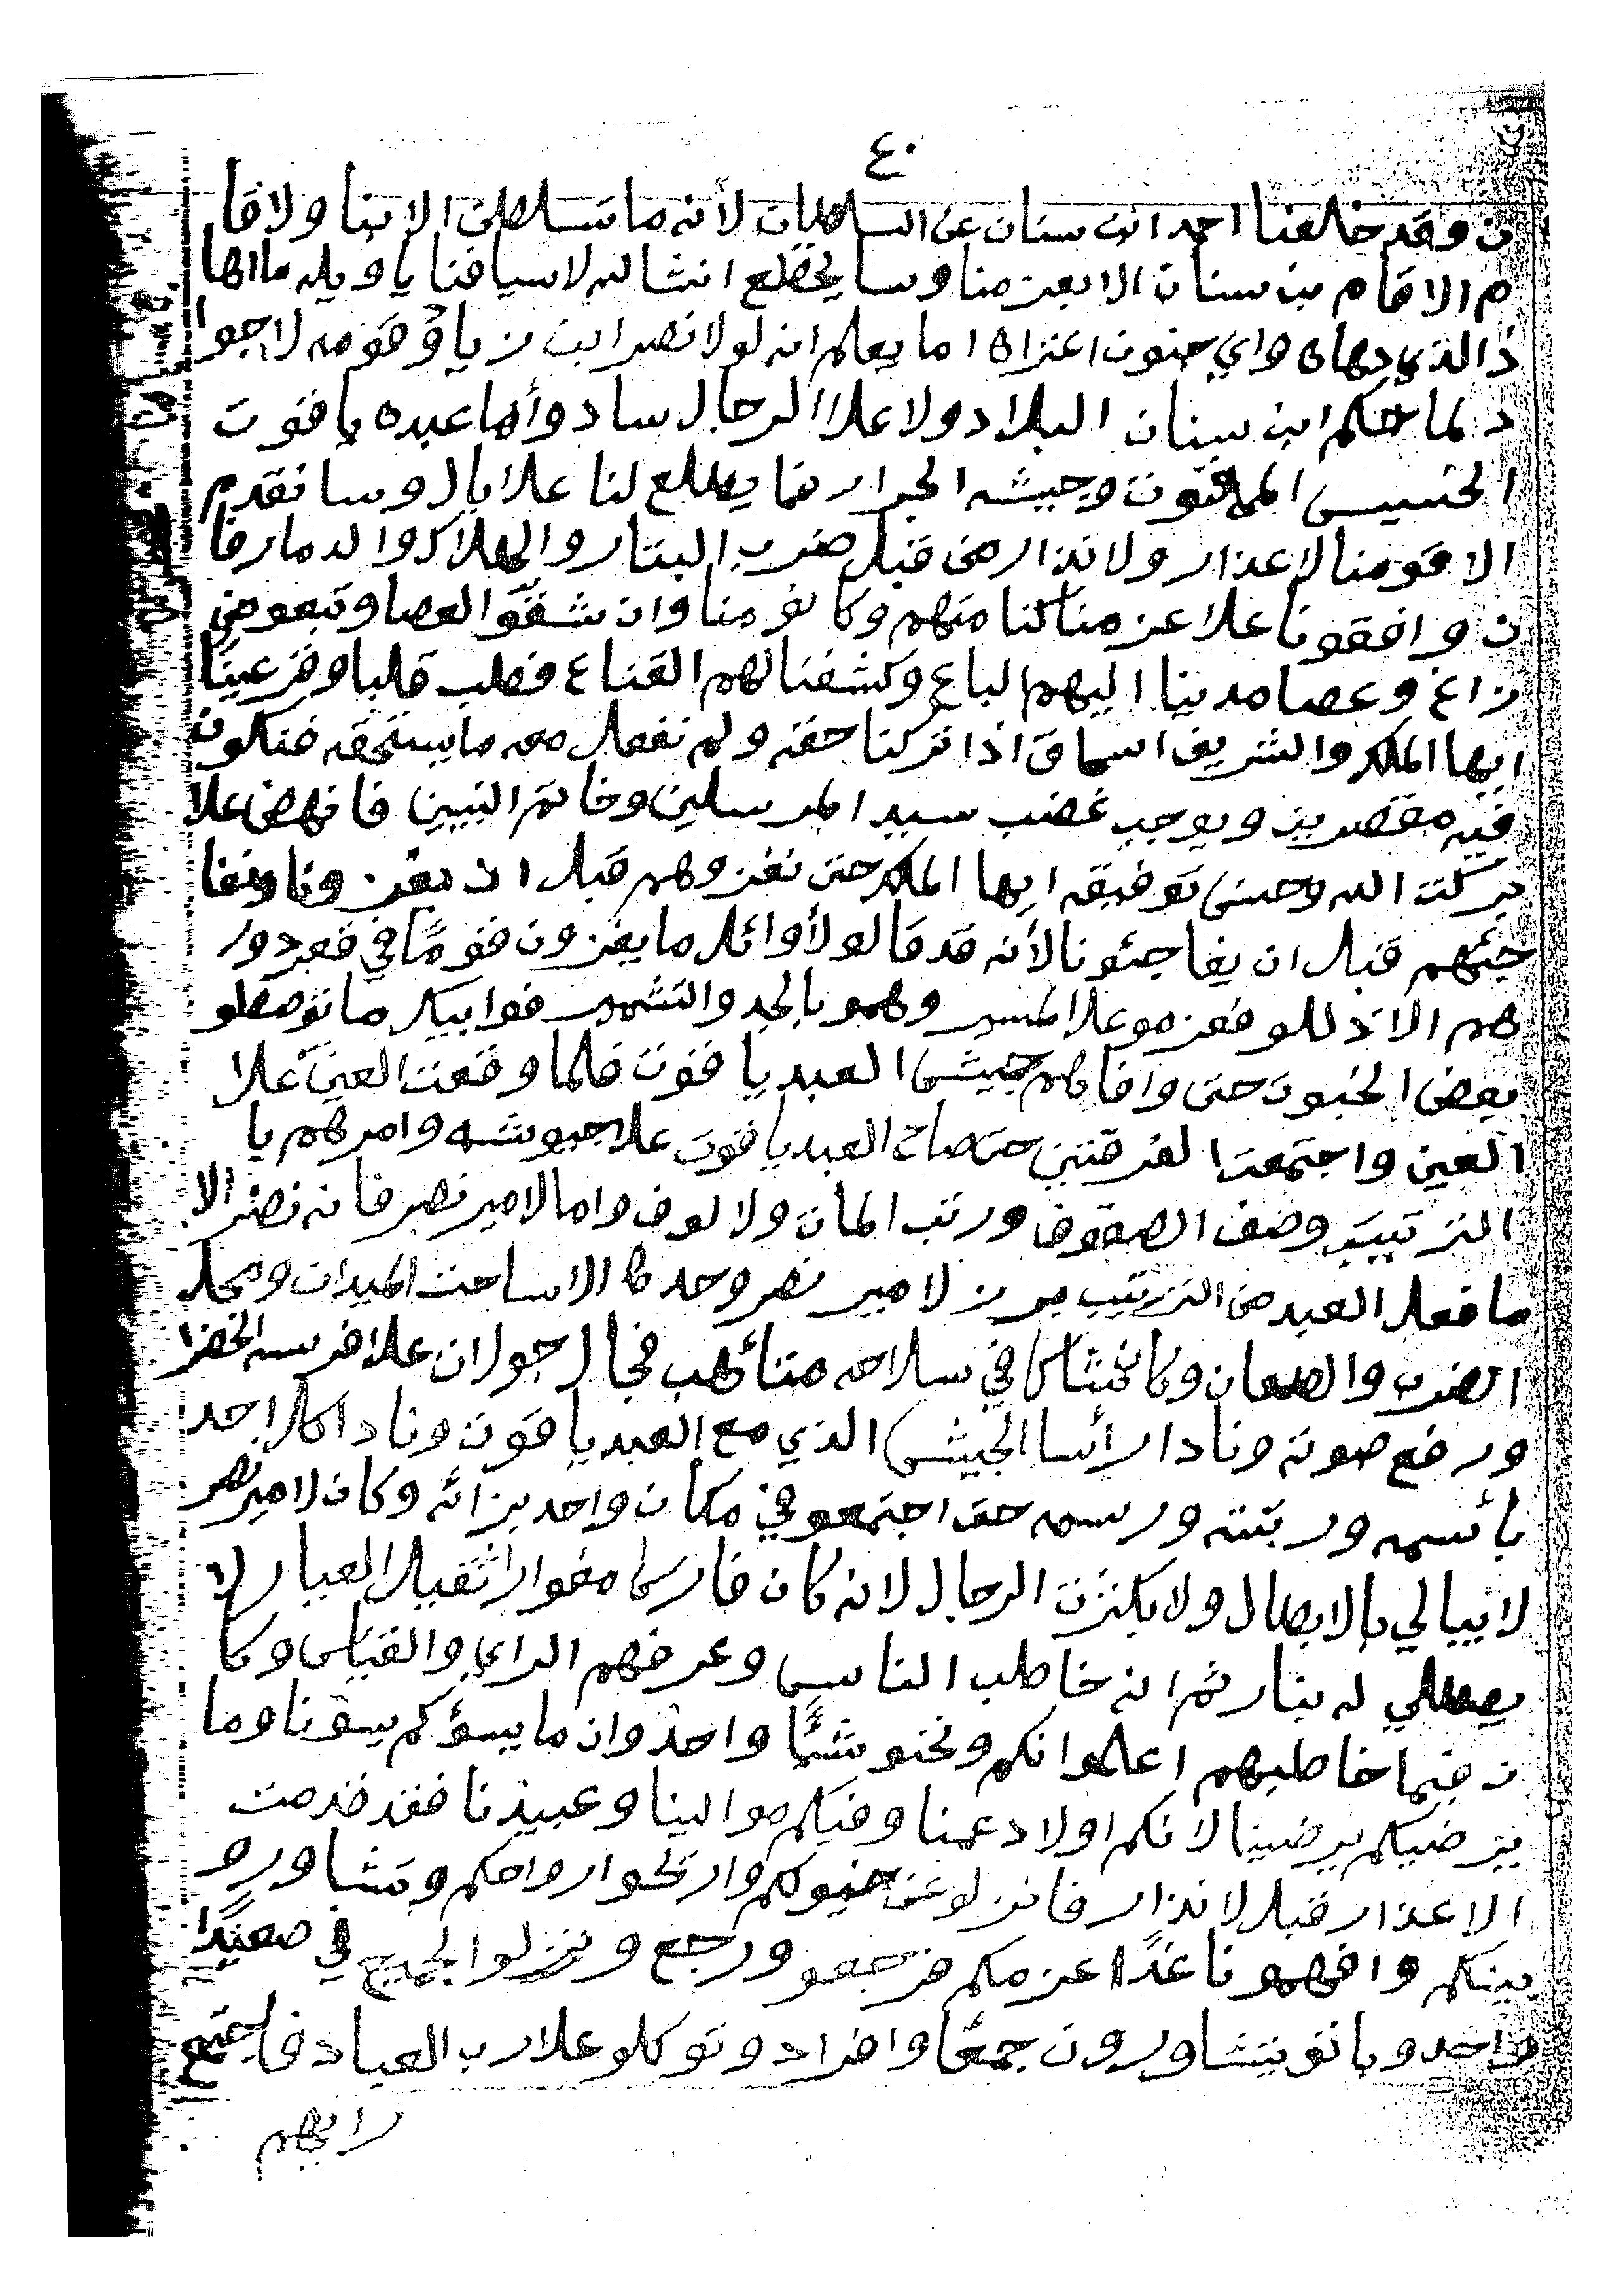 ٤٠
ن وقد خالفنا احمد ابن سنان عن السلطان لأنه ما تسلطن الا بنا ولا قا
م الاقام بن سنان الا بعزمنا وسا يخضع انشا لله لاسيافنا يا ويله ما اها
ذالذي دهاه واي جنون اعتراه اما يعلم انه لولا نصر ابن زياد وقومه لاجوا
د لما حكم ابن سنان البلاد ولا علا الرجال ساد وأما عبده ياقوت
الخسيس الممقوت وجيشه الجرار فما يطلع لنا علا بال وسا نقدم
الا قومنا لاعذار ولا نذار من قبل ضرب البتار والهلاك والدمار فا
ن وافقونا علا عزمنا كنا منهم وكانو منا وان شقو العصا وتبعو من
زاغ وعصا مدينا اليهم الباع وكشفنا لهم القناع فطب قلبا وقر عينا
ايها الملك والشريف اسحاق اذا تركنا حقه ولم نفعل معه ما يستحقه فنكون
فيه مقصرين ويوجب غضب سيد المرسلين وخاتم النبيين فانهض علا
بركت الله وحسن توفيقه ايها الملك حتى نغزوهم قبل ان يغزونا ونفا
جئهم قبل ان يفاجئونا لأنه قد قالو لأوائل ما يغزون قومًا في قعر دور
هم الا ذللو فعزمو علا المسير وهمو بالجد والتشمير فوابيك ما توصطو
بعض الخبوت حتى وافاهم جيش العبد ياقوت فلما وقعت العين علا
العين واجتمعت الفرقتين حتى صاح العبد ياقوت علا جيوشه وامرهم با
الترتيب وصف الصفوف ورتب المات ولالوف واما لامير نصر فانه نضر الا
ما فعل العبد من الترتيب برز لامير نصر وحده الا ساحت الميدان ومحل
الضرب والطعان وكان شاكا في سلاحه متأهب فجال جولان علا فرسه الخضرا
ورفع صوته ونادا رأسا الجيش الذي مع العبد ياقوت ونادا كلا احد
بأسمه وربتته ورسمه حتى اجتمعو في مكان واحد بزائه وكان لامير نصر
لا يبالي بالابطال ولا بكثرت الرجال لانه كان فارس مغوار ثقيل العيار لا
يصطلي له بنار ثم انه خاطب الناس وعرفهم الراي والقياس وكا
ن فيما خاطبهم اعلموا انكم ونحنو شئًا واحد وان ما يسؤكم يسؤنا وما
يرضيكم يرضينا لانكم اولاد عمنا وفيكم موالينا وعبيدنا فقد قدمت
الاعذار قبل لانذار فانزلو عن خيولكم وارتحوا رواحكم وتشاورو
بينكم وافهمونا غدًا عزمكم فرجعو ورجع ونزلوا الجميع في صعيدًا
واحد وباتو يتشاورون جمعًا وافراد وتوكلو علا رب العباد فاجتمع
رايهم